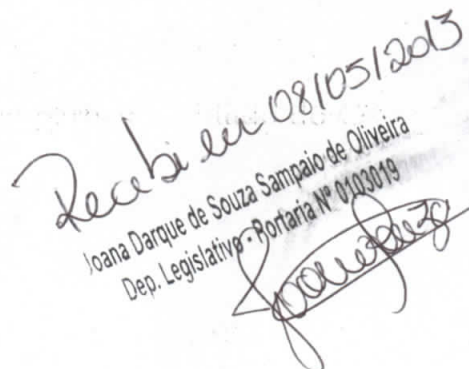 Recebi em 08/05/2013
Joana Darque de Souza Sampaio de Oliveira
Dep. Legislativo - Portaria Nº 0103019